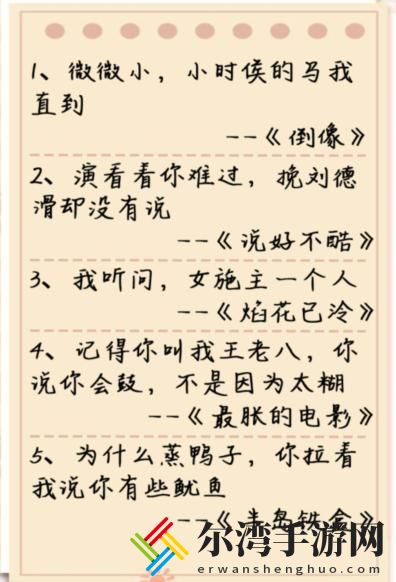 1、微微小，小时侯的马我
直到
--《倒像》
2、演看着你难过，挽刘德
滑却没有说
--《说好不酷》
3、我听问，女施主一个人
--《焰花已冷》
4、记得你叫我王老八，你
说你会鼓，不是因为太糊
--《最胀的电影》
5、为什么蒸鸭子，你拉看
我说你有些鱿鱼
--《半岛铁盒》
尔湾手游网
erwanshenghuo.com